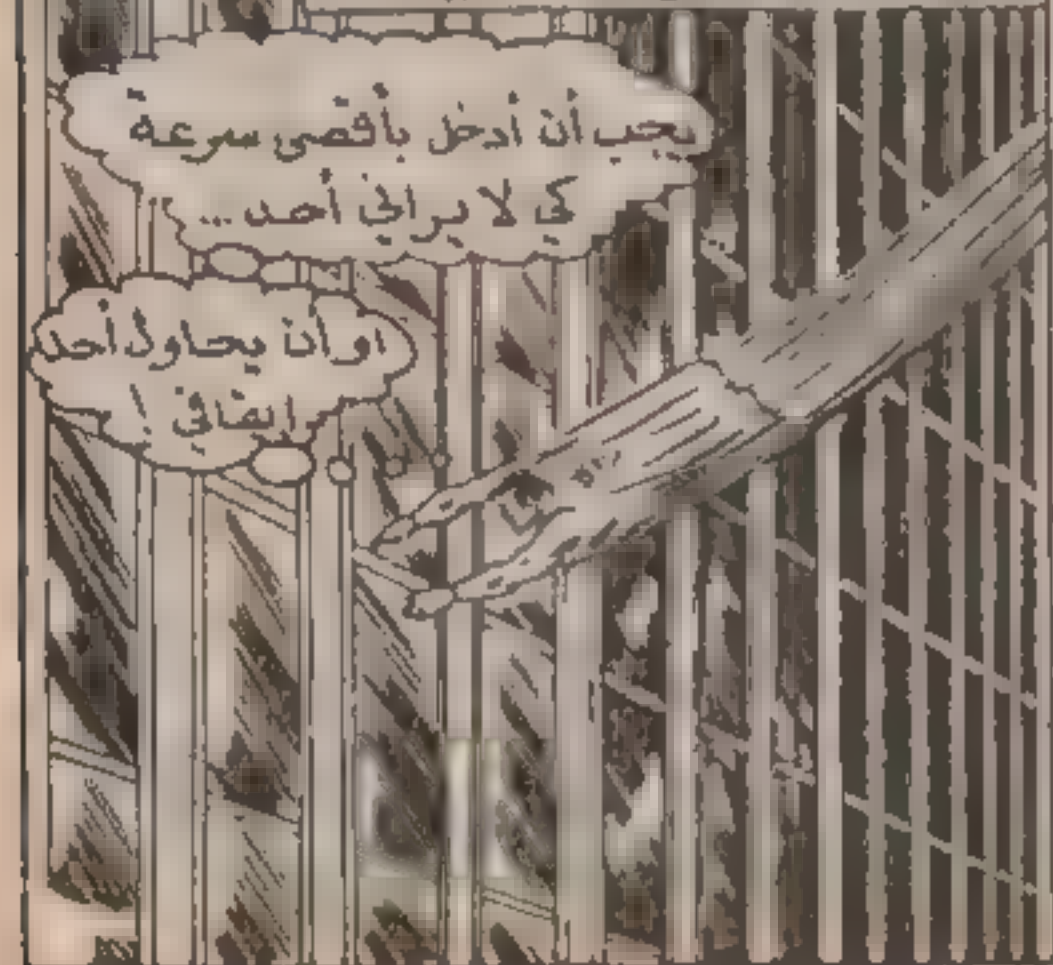 يجب أن أدخل بأقصى سرعة
كي لا يراني أحد...
او أن يحاول أحد
إيقافي !